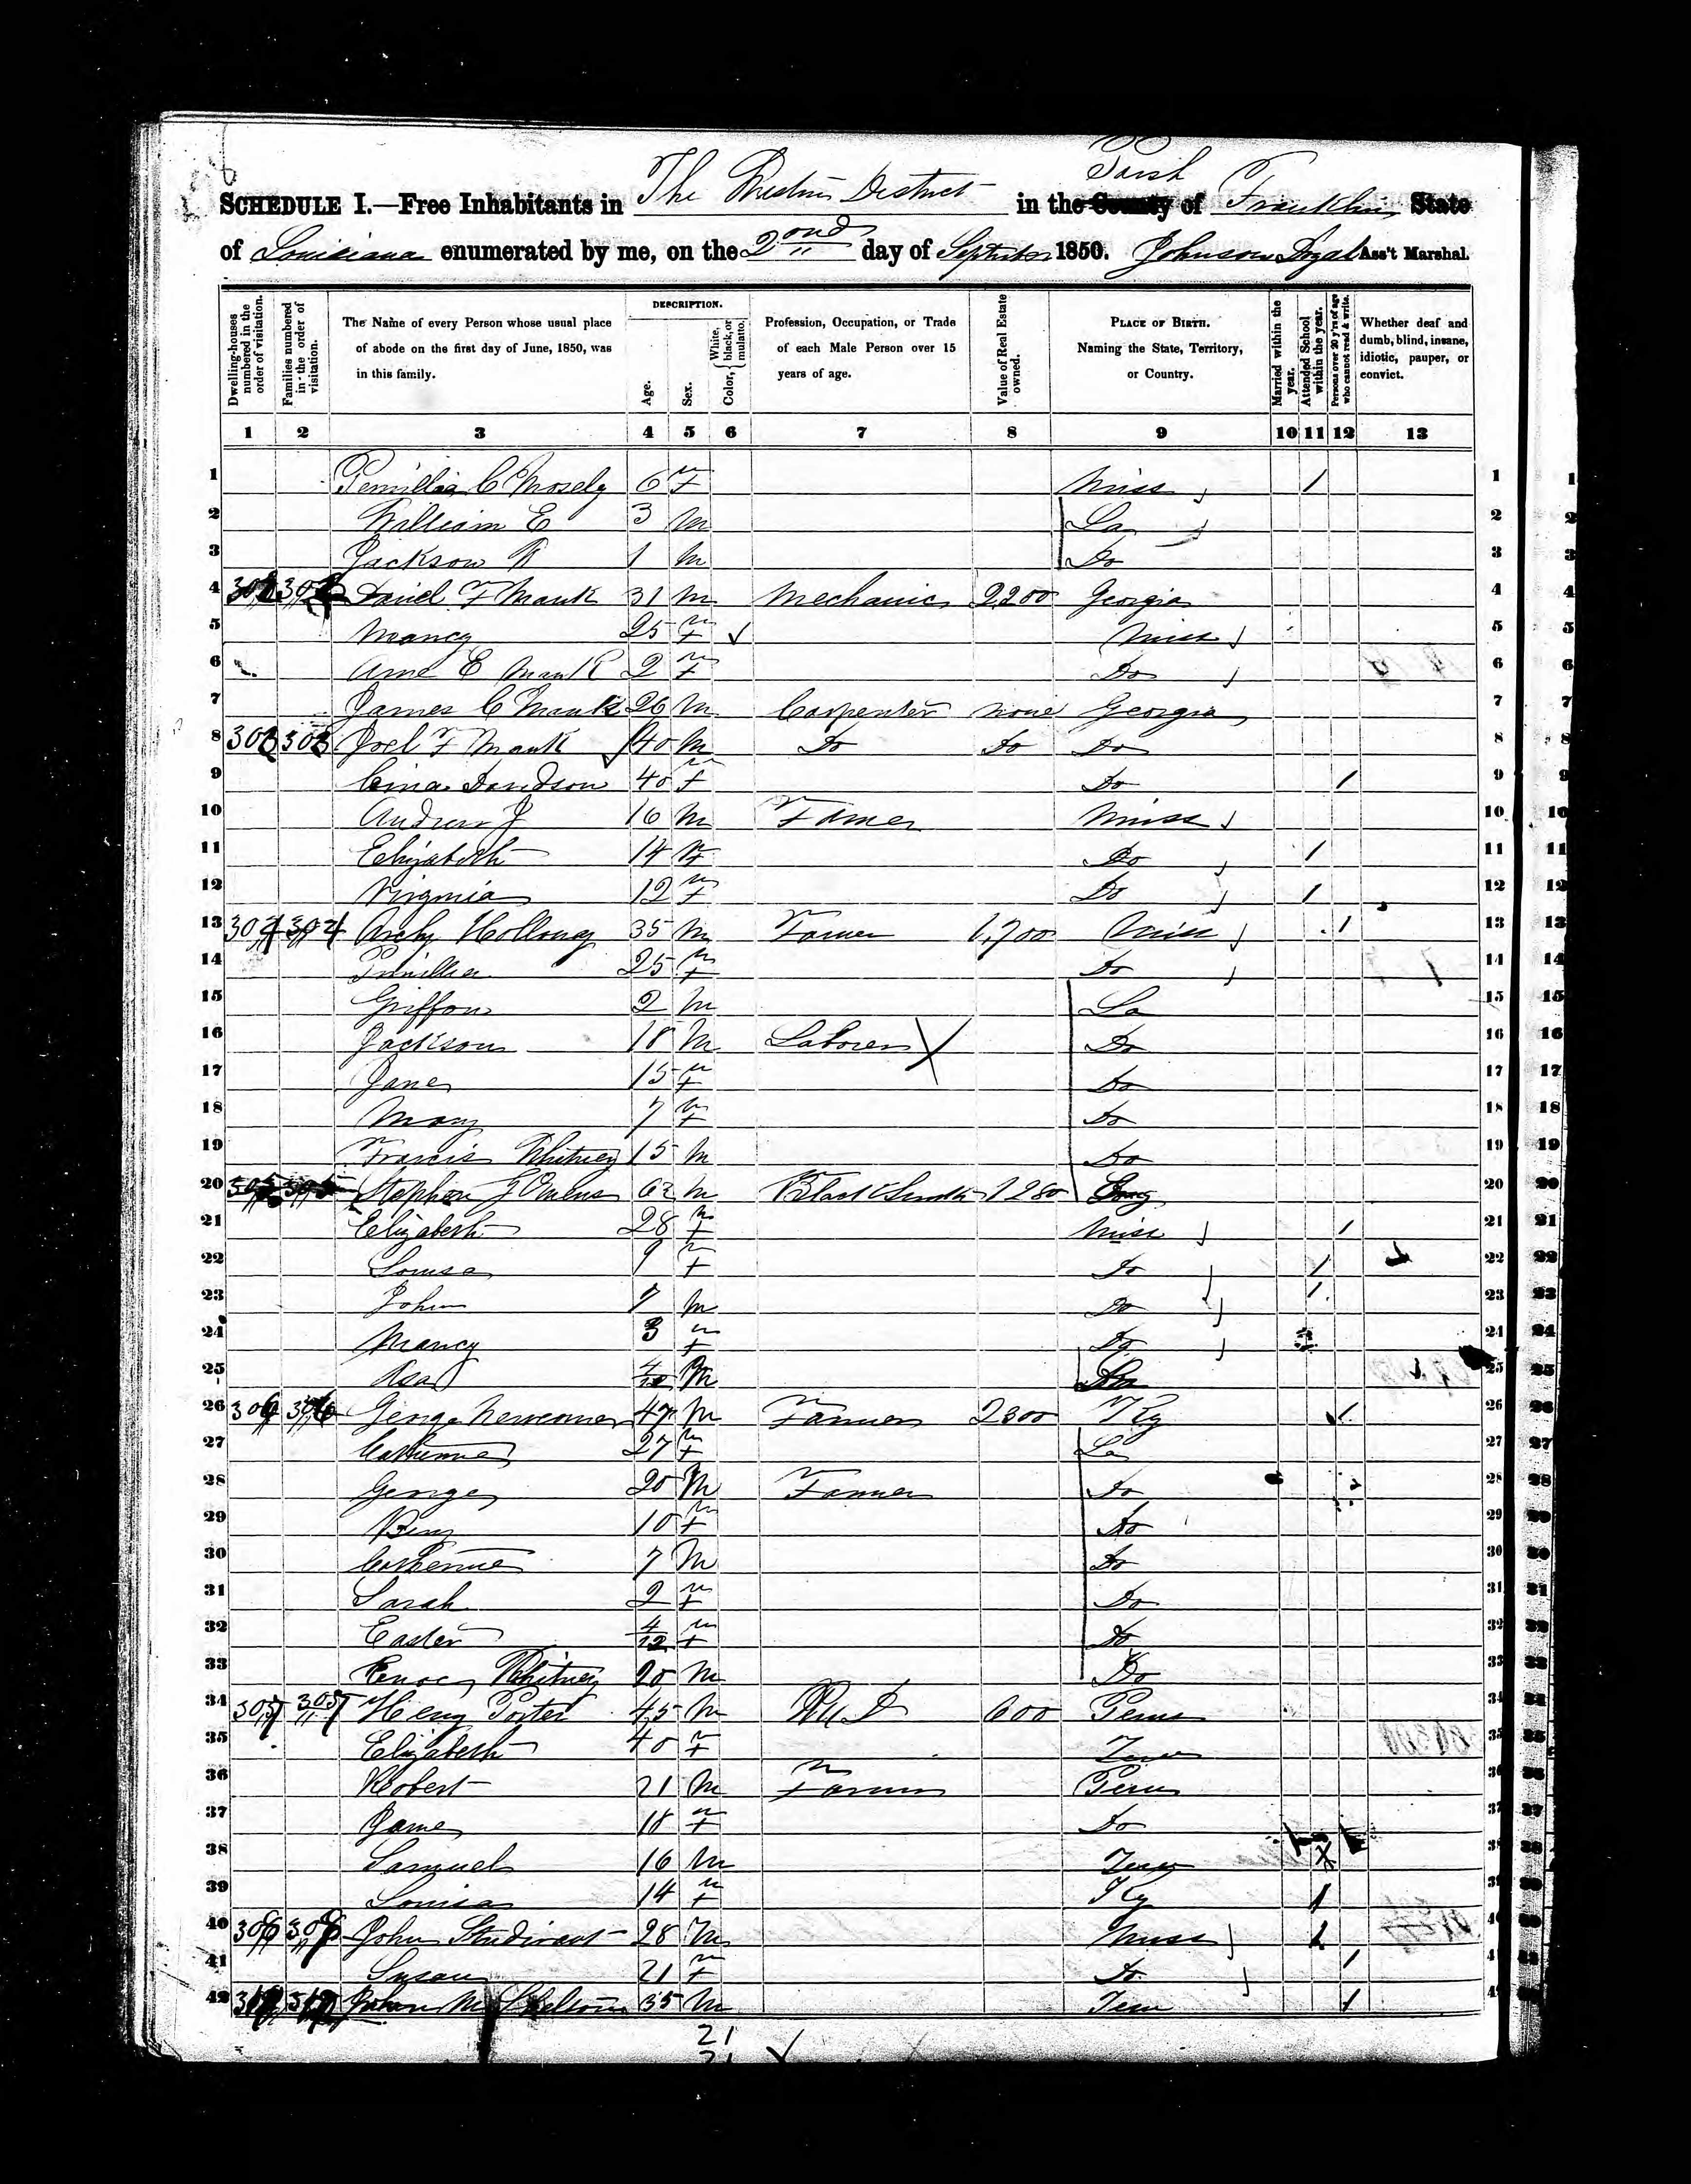 SCHEDULE I.—Free Inhabitants in The Western District in the County Parish of Franklin State
of Louisiana enumerated by me, on the 2ond day of September 1850. Johnson Ass't Marshal.
Dwelling-houses numbered in the order of visitation.
Families numbered in the order of visitation.
The Name of every Person whose usual place of abode on the first day of June, 1850, was in this family.
DESCRIPTION.
Age.
Sex.
Color, White, black, or mulatto.
Profession, Occupation, or Trade of each Male Person over 15 years of age.
Value of Real Estate owned.
PLACE OF BIRTH. Naming the State, Territory, or Country.
Married within the year.
Attended School within the year.
Persons over 20 y'rs of age who cannot read & write.
Whether deaf and dumb, blind, insane, idiotic, pauper, or convict.
1 2 3 4 5 6 7 8 9 10 11 12 13
1 C Mosely 6 F Miss / 1
2 William E 3 M La 2
3 Jackson R 1 M Do 3
4 302 302 Daniel F Mank 31 M Mechanic 2,200 Georgia 4
5 Nancy 25 F Miss 5
6 Ame E Mank 2 F Do 6
7 James C Mank 26 M Carpenter none Georgia 7
8 303 303 Joel F Mank 40 M Do Do Do 8
9 Davidson 40 F Do / 9
10 Andrew J 16 M Farmer Miss 10
11 Elizabeth 14 F Do / 11
12 Virginia 12 F Do / 12
13 304 304 Archy Holloway 35 M Farmer 1,700 Miss / 13
14 25 F Do 14
15 Griffon 2 M La 15
16 Jackson 18 M Laborer X Do 16
17 Jane 15 F Do 17
18 Mary 7 F Do 18
19 Francis Whitney 15 M Do 19
20 305 305 Stephen J Owens 62 M Black Smith 1280 20
21 Elizabeth 28 F Miss / 21
22 Louisa 9 F Do / 22
23 John 7 M Do / 23
24 Nancy 3 F Do 24
25 Asa 4/12 M La 25
26 306 306 George Newcomer 47 M Farmer 2300 Ky 26
27 Catherine 27 F La 27
28 George 20 M Farmer Do 28
29 10 F Do 29
30 Catherine 7 M Do 30
31 Sarah 2 F Do 31
32 Easter 4/12 F Do 32
33 Enoc Whitney 20 M Do 33
34 307 307 Henry Porter 45 M M D 600 Penn 34
35 Elizabeth 40 F Tenn 35
36 Robert 21 M Farmer Penn 36
37 Jane 18 F Do 37
38 Samuel 16 M Tenn 38
39 Louisa 14 F Ky / 39
40 308 308 John Studivant 28 M Miss / 40
41 Susan 21 F Do / 41
42 John M 35 M Tenn / 42
21
21